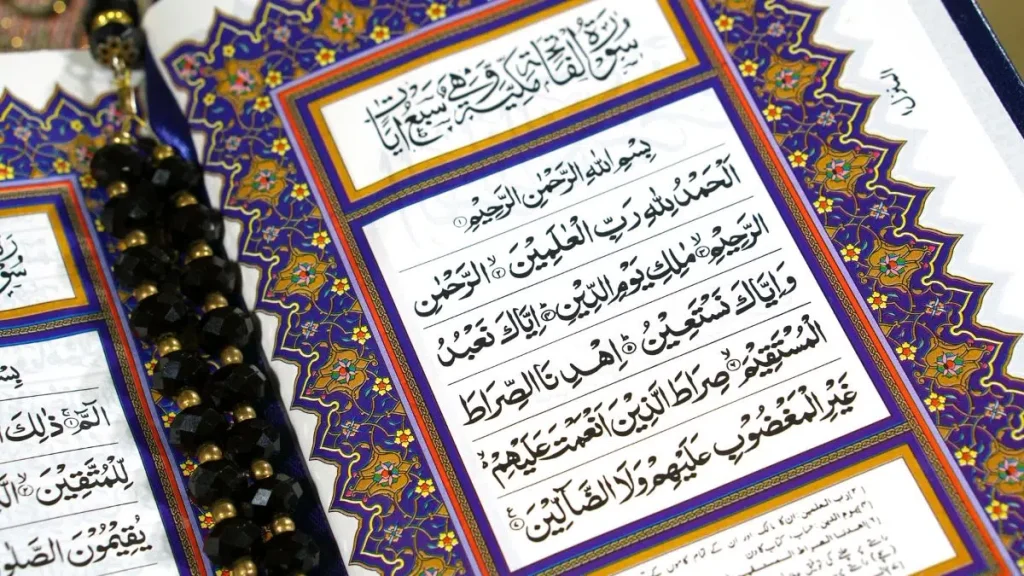 سُوْرَةُ الْفَاتِحَةِ مَكِّيَّةٌ وَّهِيَ سَبْعُ اٰيَاتٍ
بِسْمِ اللهِ الرَّحْمٰنِ الرَّحِيْمِ ۝١
اَلْحَمْدُ لِلّٰهِ رَبِّ الْعٰلَمِيْنَ ۝٢ الرَّحْمٰنِ
الرَّحِيْمِ ۝٣ مٰلِكِ يَوْمِ الدِّيْنِ ۝٤ اِيَّاكَ نَعْبُدُ
وَاِيَّاكَ نَسْتَعِيْنُ ۝٥ اِهْدِنَا الصِّرَاطَ
الْمُسْتَقِيْمَ ۝٦ صِرَاطَ الَّذِيْنَ اَنْعَمْتَ عَلَيْهِمْ
غَيْرِ الْمَغْضُوْبِ عَلَيْهِمْ وَلَا الضَّآلِّيْنَ
الٓمّٓ ۝١ ذٰلِكَ
لِّلْمُتَّقِيْنَ ۝٢
يُقِيْمُوْنَ